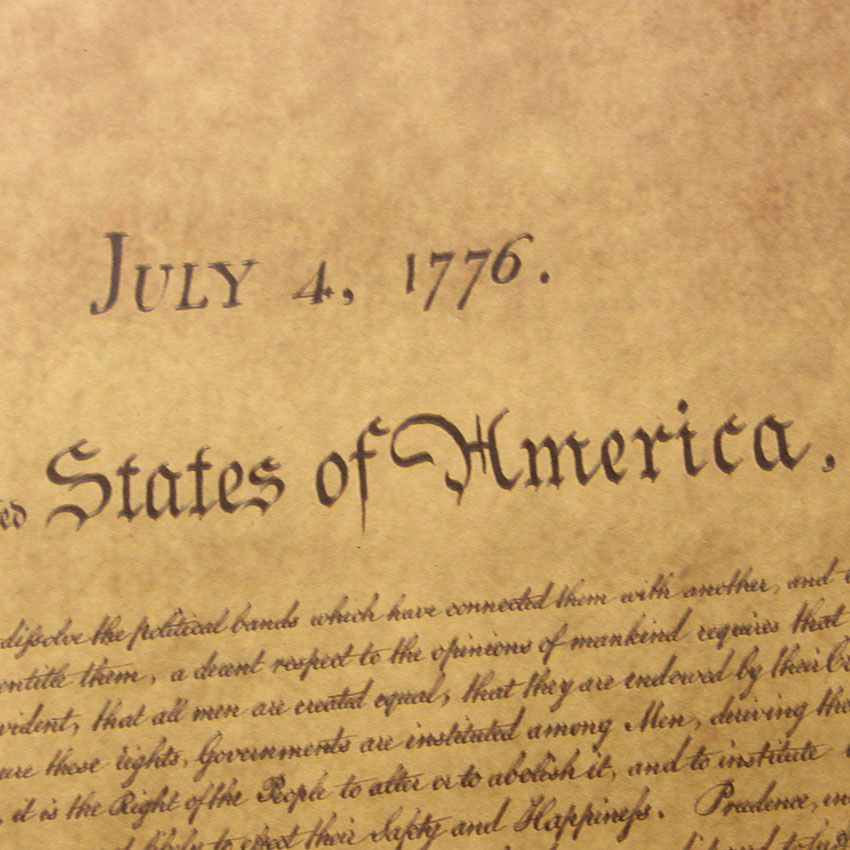 July 4, 1776.
ed States of America,
dissolve the political bands which have connected them with another, and
entitle them, a decent respect to the opinions of mankind requires that
vident, that all men are created equal, that they are endowed by their
ure these rights, Governments are instituted among Men, deriving
, it is the Right of the People to alter or to abolish it, and to institute
likely to effect their Safety and Happiness. Prudence, in